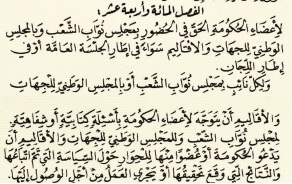 الفصل المائة وأربعة عشر:
لِأعضاء الحكومة الحق في الحضور بمجلس نواب الشعب وبالمجلس
الوطني للجهات والأقاليم سواء في إطار الجلسة العامّة أو في
إطار اللجان.
ولكل نائب بمجلس نواب الشعب أو بالمجلس الوطني للجهات
والأقاليم أن يتوجه لأعضاء الحكومة بأسئلة كتابية أو شفاهية.
لمجلس نواب الشعب وللمجلس الوطني للجهات والأقاليم أن
يدعو الحكومة أو عضوا منها للحوار حول السياسة التي تم اتباعها
والنتائج التي وقع تحقيقها أو يجري العمل من أجل الوصول إليها.